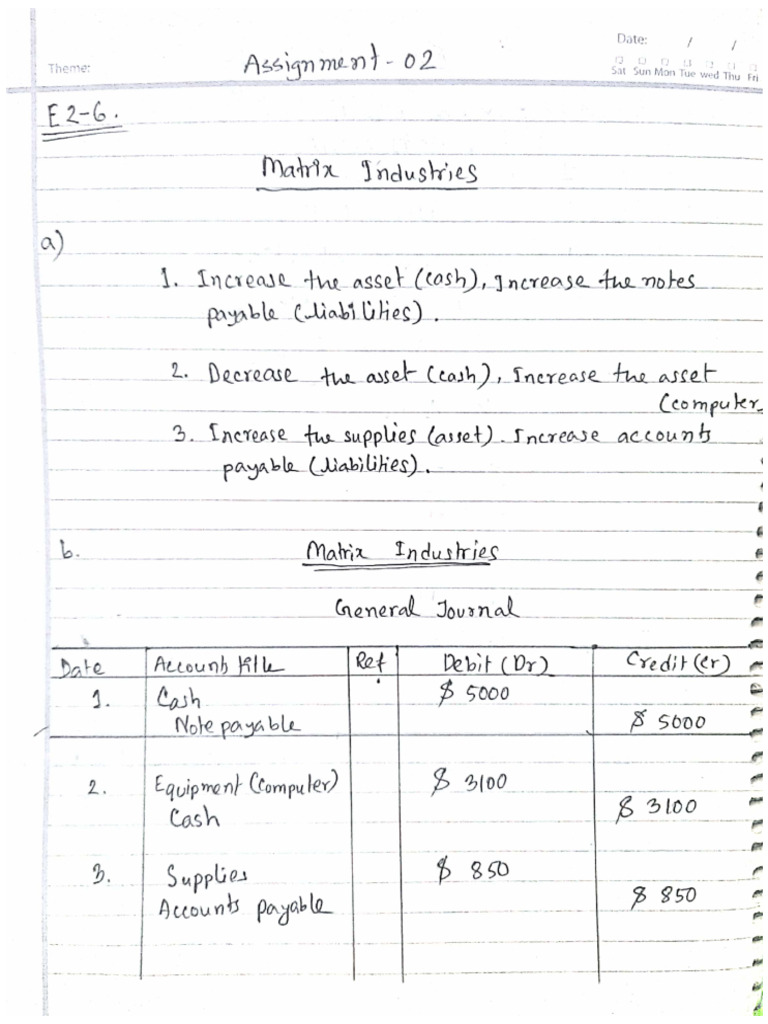 Date: / /
Theme:
Assignment-02
Sat Sun Mon Tue wed Thu Fri
E2-6.
Matrix Industries
a)
1. Increase the asset (cash), Increase the notes
payable (liabilities).
2. Decrease the asset (cash), Increase the asset
(computer
3. Increase the supplies (asset). Increase accounts
payable (liabilities).
b. Matrix Industries
General Journal
Date Accounts title Ref Debit (Dr) Credit (cr)
1. Cash $ 5000
Note payable $ 5000
2. Equipment (computer) $ 3100
Cash $ 3100
3. Supplies $ 850
Accounts payable $ 850